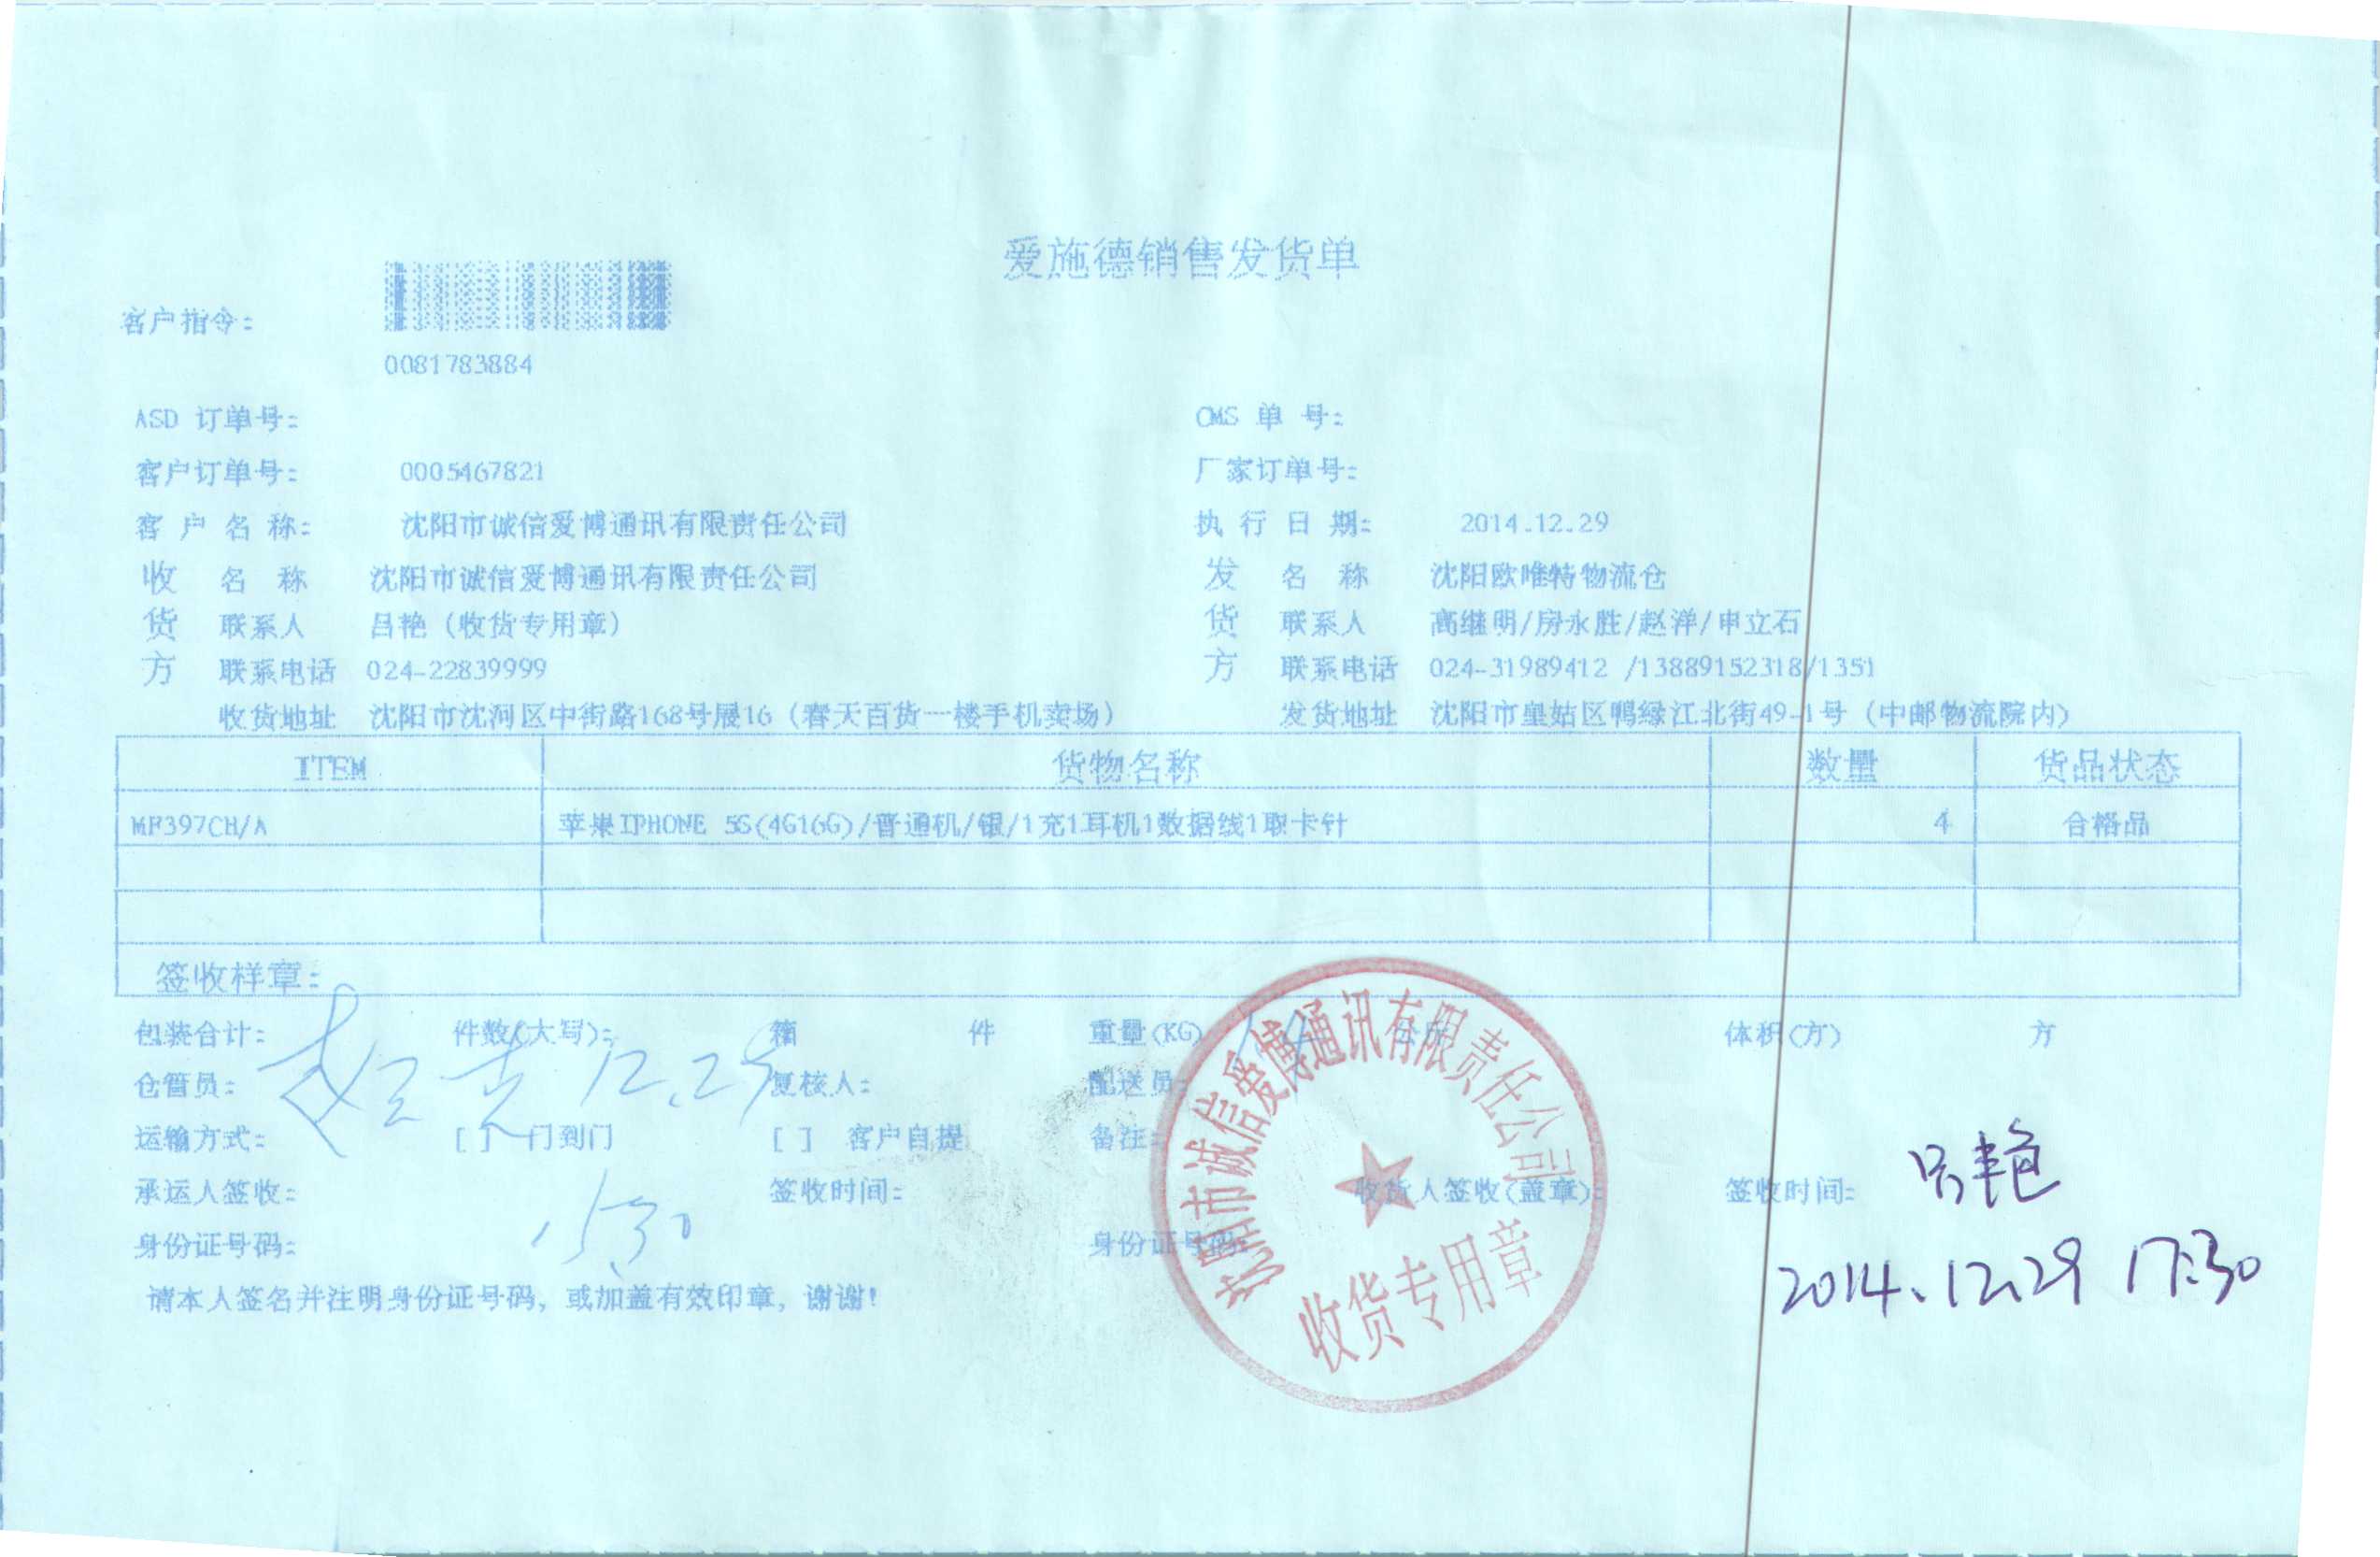 爱施德销售发货单
客户指令:
0081783884
ASD 订单号: CMS 单 号:
客户订单号: 0005467821 厂家订单号:
客 户 名 称: 沈阳市诚信爱博通讯有限责任公司 执 行 日 期: 2014.12.29
收 名 称 沈阳市诚信爱博通讯有限责任公司 发 名 称 沈阳欧唯特物流仓
货 联系人 吕艳（收货专用章） 货 联系人 高继明/房永胜/赵洋/申立石
方 联系电话 024-22839999 方 联系电话 024-31989412 /13889152318/1351
收货地址 沈阳市沈河区中街路168号展16（春天百货一楼手机卖场） 发货地址 沈阳市皇姑区鸭绿江北街49-1号（中邮物流院内）
ITEM 货物名称 数量 货品状态
MF397CH/A 苹果IPHONE 5S(4G16G)/普通机/银/1充1耳机1数据线1取卡针 4 合格品
签收样章:
包装合计: 件数(大写): 箱 件 重量(KG) 公斤 体积(方) 方
仓管员: 12.29 复核人: 配送员:
运输方式: [ ] 门到门 [ ] 客户自提 备注:
承运人签收: 签收时间: 收货人签收(盖章): 签收时间: 吕艳
身份证号码: 15:30 身份证号码: 2014.12.29 17:30
请本人签名并注明身份证号码, 或加盖有效印章, 谢谢!
沈阳市诚信爱博通讯有限责任公司
收货专用章